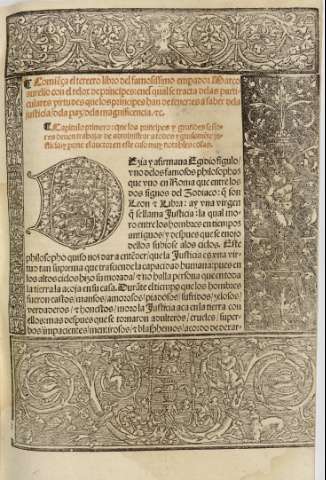 Comiēça el tercero libro del famosissimo emperador Marco
aurelio con el relox de principes: en el qual se tracta de las parti
culares virtudes que los principes han de tener: es a saber dela
justicia/ dela paz/ dela magnificencia. ⁊c.
Capitulo primero: que los principes y grandes seño
res deuen trabajar de administrar a todos
justicia: y pone el auctor en esto cosas muy notables.
Dezia y afirmaua Egidio figulo/
vno delos famosos philosophos
que vuo en Roma que entre los
dos signos del Zodiaco: q̃ son
Leon ⁊ Libra: ay vna virgen
q̃ se llama Justicia: la qual mo-
ro entre los hombres en tiempos
antiguos/ y despues que se enojo
dellos subiose alos cielos. Este
philosopho quiso nos dar a entēder: que la Justicia es vna vir-
tud tan suprema que trasciende la capacidad humana: pues en
los altos cielos hizo su morada/ ⁊ no hallo persona que en toda
la tierra la acoja en su casa. Durāte el tiempo que los hombres
fueron castos/ mansos/ amorosos/ piadosos/ sufridos/ zelosos/
verdaderos/ ⁊ honestos/ moro la Justicia aca en la tierra con
ellos: mas despues que se tornaron adulteros/ crueles/ super-
bos/ impacientes/ mentirosos/ ⁊ blasphemos/ acordo de dexar-